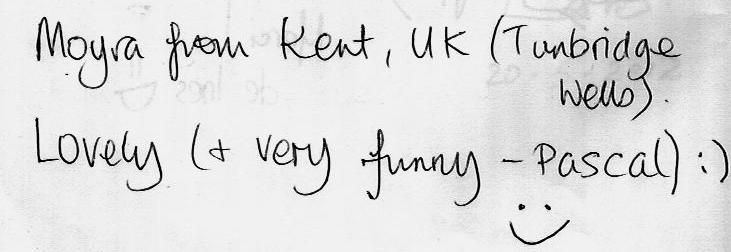 Moyra from Kent, UK (Tunbridge
Wells).
Lovely (+ very funny - Pascal) :)